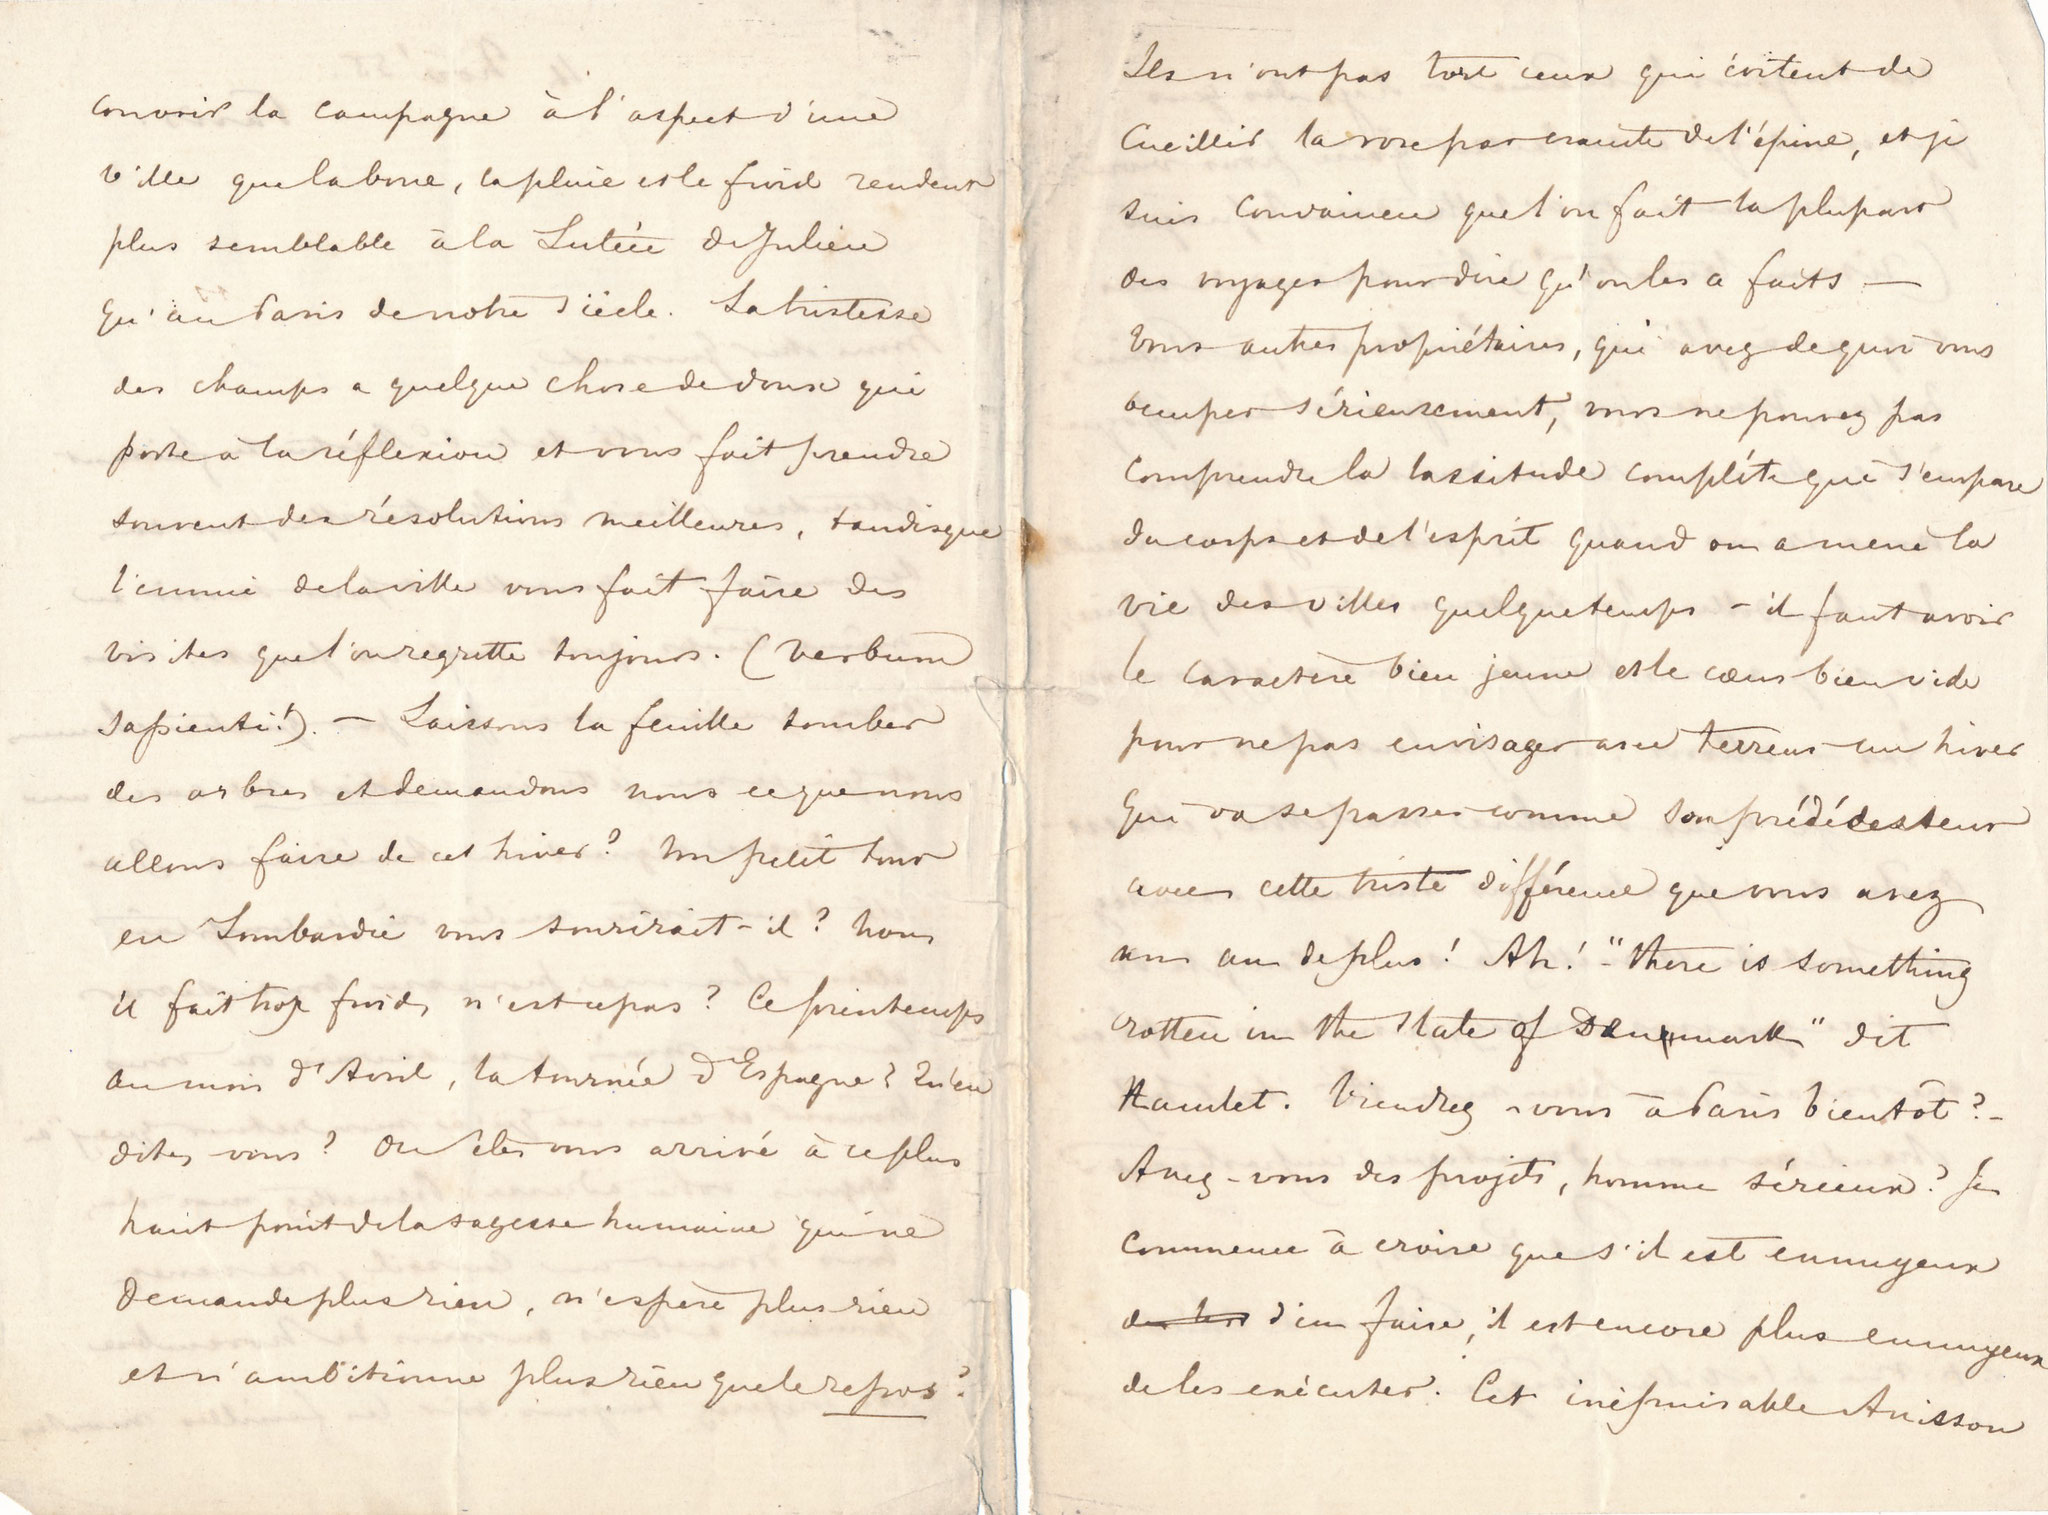 couvrir la campagne à l'aspect d'une
ville que la boue, la pluie et le froid rendent
plus semblable à la Lutèce de Julien
qu'au Paris de notre siècle. La tristesse
des champs a quelque chose de doux qui
porte à la réflexion et vous fait prendre
souvent des résolutions meilleures, tandis que
l'ennui de la ville vous fait faire des
visites que l'on regrette toujours. (Verbum
sapienti!). — Laissons la feuille tomber
des arbres et demandons nous ce que nous
allons faire de cet hiver? Un petit tour
en Lombardie vous sourirait-il? Non
il fait trop froid, n'est ce pas? Ce printemps
au mois d'Avril, la tournée d'Espagne? Qu'en
dites vous? Ou êtes vous arrivé à ce plus
haut point de la sagesse humaine qui ne
demande plus rien, n'espère plus rien
et n'ambitionne plus rien que le repos?
Ils n'ont pas tort ceux qui évitent de
cueillir la rose par crainte de l'épine, et je
suis convaincu que l'on fait la plupart
des voyages pour dire qu'on les a faits —
Vous autres propriétaires, qui avez de quoi vous
occuper sérieusement, vous ne pouvez pas
comprendre la lassitude complète qui s'empare
du corps et de l'esprit quand on a mené la
vie des villes quelque temps - il faut avoir
le caractère bien jeune et le cœur bien vide
pour ne pas envisager avec terreur un hiver
qui va se passer comme son prédécesseur
avec cette triste différence que vous avez
un an de plus! Ah! - "there is something
rotten in the State of Denmark" dit
Hamlet. Viendrez-vous à Paris bientôt? -
Avez-vous des projets, homme sérieux? Je
commence à croire que s'il est ennuyeux
d'en faire, il est encore plus ennuyeux
de les exécuter. Cet inépuisable Anisson